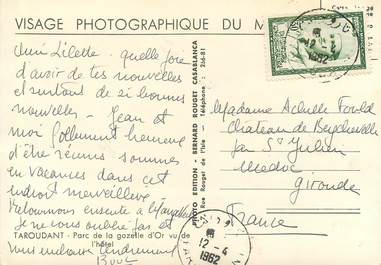 VISAGE PHOTOGRAPHIQUE DU M
Chère Lilette - quelle joie
d'avoir de tes nouvelles
et surtout de si bonnes
nouvelles - Jean et
moi follement heureux
d'être réunis sommes
en vacances dans cet
endroit merveilleux
Retournons ensuite à
Je ne vous oublie pas et
TAROUDANT - Parc de la gazelle d'Or vu de
l'hôtel
vous embrasse tendrement
PHOTO EDITION - BERNARD ROUGET CASABLANCA
Rue Rouget de l'Isle - Téléphone : 266-81
12-4
1962
Madame Achille Fould
Château de Beychevelle
par St Julien
Médoc
Gironde
France
12-4
1962